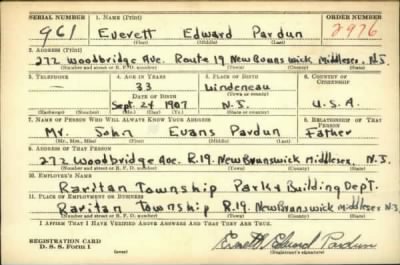 SERIAL NUMBER 1. NAME (Print) ORDER NUMBER
961 Everett Edward Pardun 2976
(First) (Middle) (Last)
2. ADDRESS (Print)
272 Woodbridge Ave. Route 19 New Brunswick Middlesex. N.J.
(Number and street or R. F. D. number) (Town) (County) (State)
3. TELEPHONE 4. AGE IN YEARS 5. PLACE OF BIRTH 6. COUNTRY OF CITIZENSHIP
— 33 Lindeneau
DATE OF BIRTH (Town or county)
Sept. 24 1907 N.J. U.S.A.
(Exchange) (Number) (Mo.) (Day) (Yr.) (State or country)
7. NAME OF PERSON WHO WILL ALWAYS KNOW YOUR ADDRESS 8. RELATIONSHIP OF THAT PERSON
Mr. John Evans Pardun Father
(Mr., Mrs., Miss) (First) (Middle) (Last)
9. ADDRESS OF THAT PERSON
272 Woodbridge Ave. R.19. New Brunswick Middlesex, N.J.
(Number and street or R. F. D. number) (Town) (County) (State)
10. EMPLOYER'S NAME
Raritan Township Park & Building Dept.
11. PLACE OF EMPLOYMENT OR BUSINESS
Raritan Township R.19. New Brunswick Middlesex N.J.
(Number and street or R. F. D. number) (Town) (County) (State)
I AFFIRM THAT I HAVE VERIFIED ABOVE ANSWERS AND THAT THEY ARE TRUE.
REGISTRATION CARD
D. S. S. Form 1 (over) Everett Edward Pardun
(Registrant's signature)